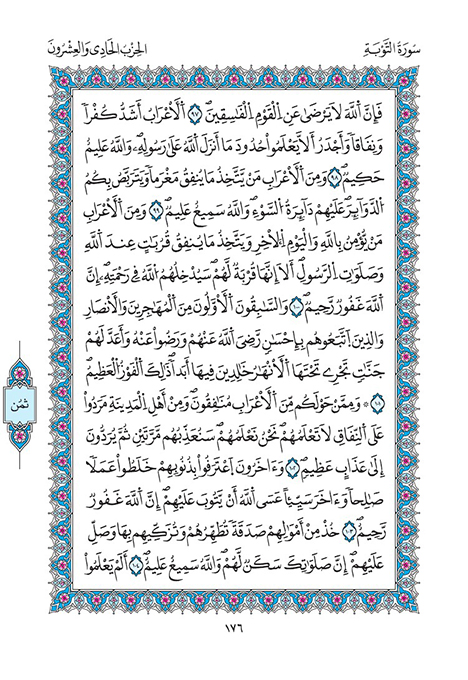 سُورَةُ التَّوْبَةِ
الحِزْبُ الحَادِي وَالعِشْرُونَ
فَإِنَّ اَللَّهَ لَا يَرْضَىٰ عَنِ اِلْقَوْمِ اِلْفَٰسِقِينَۖ ٩٧ اَلْأَعْرَابُ أَشَدُّ كُفْراً
وَنِفَاقاً وَأَجْدَرُ أَلَّا يَعْلَمُواْ حُدُودَ مَا أَنزَلَ اَللَّهُ عَلَىٰ رَسُولِهِۦۖ وَاللَّهُ عَلِيمٌ
حَكِيمٌۖ ٩٨ وَمِنَ اَلْأَعْرَابِ مَنْ يَّتَّخِذُ مَا يُنفِقُ مَغْرَماً وَيَتَرَبَّصُ بِكُمُ
اُلدَّوَآئِرَۖ عَلَيْهِمْ دَآئِرَةُ اُلسَّوْءِۖ وَاللَّهُ سَمِيعٌ عَلِيمٌۖ ٩٩ وَمِنَ اَلْأَعْرَابِ
مَنْ يُّؤْمِنُ بِاللَّهِ وَالْيَوْمِ اِلْأٓخِرِ وَيَتَّخِذُ مَا يُنفِقُ قُرُبَٰتٍ عِندَ اَللَّهِ
وَصَلَوَٰتِ اِلرَّسُولِۖ أَلَا إِنَّهَا قُرْبَةٌ لَّهُمْۖ سَيُدْخِلُهُمُ اُللَّهُ فِي رَحْمَتِهِۦۖ إِنَّ
اَللَّهَ غَفُورٌ رَّحِيمٌۖ ١٠٠ وَالسَّٰبِقُونَ اَلْأَوَّلُونَ مِنَ اَلْمُهَٰجِرِينَ وَالْأَنصَارِ
وَالذِينَ اَتَّبَعُوهُم بِإِحْسَٰنٍ رَّضِيَ اَللَّهُ عَنْهُمْ وَرَضُواْ عَنْهُ وَأَعَدَّ لَهُمْ
جَنَّٰتٍ تَجْرِي تَحْتَهَا اَلْأَنْهَٰرُ خَٰلِدِينَ فِيهَا أَبَداًۖ ذَٰلِكَ اَلْفَوْزُ اُلْعَظِيمُۖ
١٠١ ۞ وَمِمَّنْ حَوْلَكُم مِّنَ اَلْأَعْرَابِ مُنَٰفِقُونَۖ وَمِنْ أَهْلِ اِلْمَدِينَةِ مَرَدُواْ
عَلَى اَلنِّفَاقِ لَا تَعْلَمُهُمْۖ نَحْنُ نَعْلَمُهُمْۖ سَنُعَذِّبُهُم مَّرَّتَيْنِ ثُمَّ يُرَدُّونَ
إِلَىٰ عَذَابٍ عَظِيمٍۖ ١٠٢ وَءَاخَرُونَ اَعْتَرَفُواْ بِذُنُوبِهِمْ خَلَطُواْ عَمَلاً
صَٰلِحاً وَءَاخَرَ سَيِّئاً عَسَى اَللَّهُ أَنْ يَّتُوبَ عَلَيْهِمْۖ إِنَّ اَللَّهَ غَفُورٌ
رَّحِيمٌۖ ١٠٣ خُذْ مِنْ أَمْوَٰلِهِمْ صَدَقَةً تُطَهِّرُهُمْ وَتُزَكِّيهِم بِهَا وَصَلِّ
عَلَيْهِمْۖ إِنَّ صَلَوَٰتِكَ سَكَنٌ لَّهُمْۖ وَاللَّهُ سَمِيعٌ عَلِيمٌۖ ١٠٤ أَلَمْ يَعْلَمُواْ
ثُمُن
١٧٦